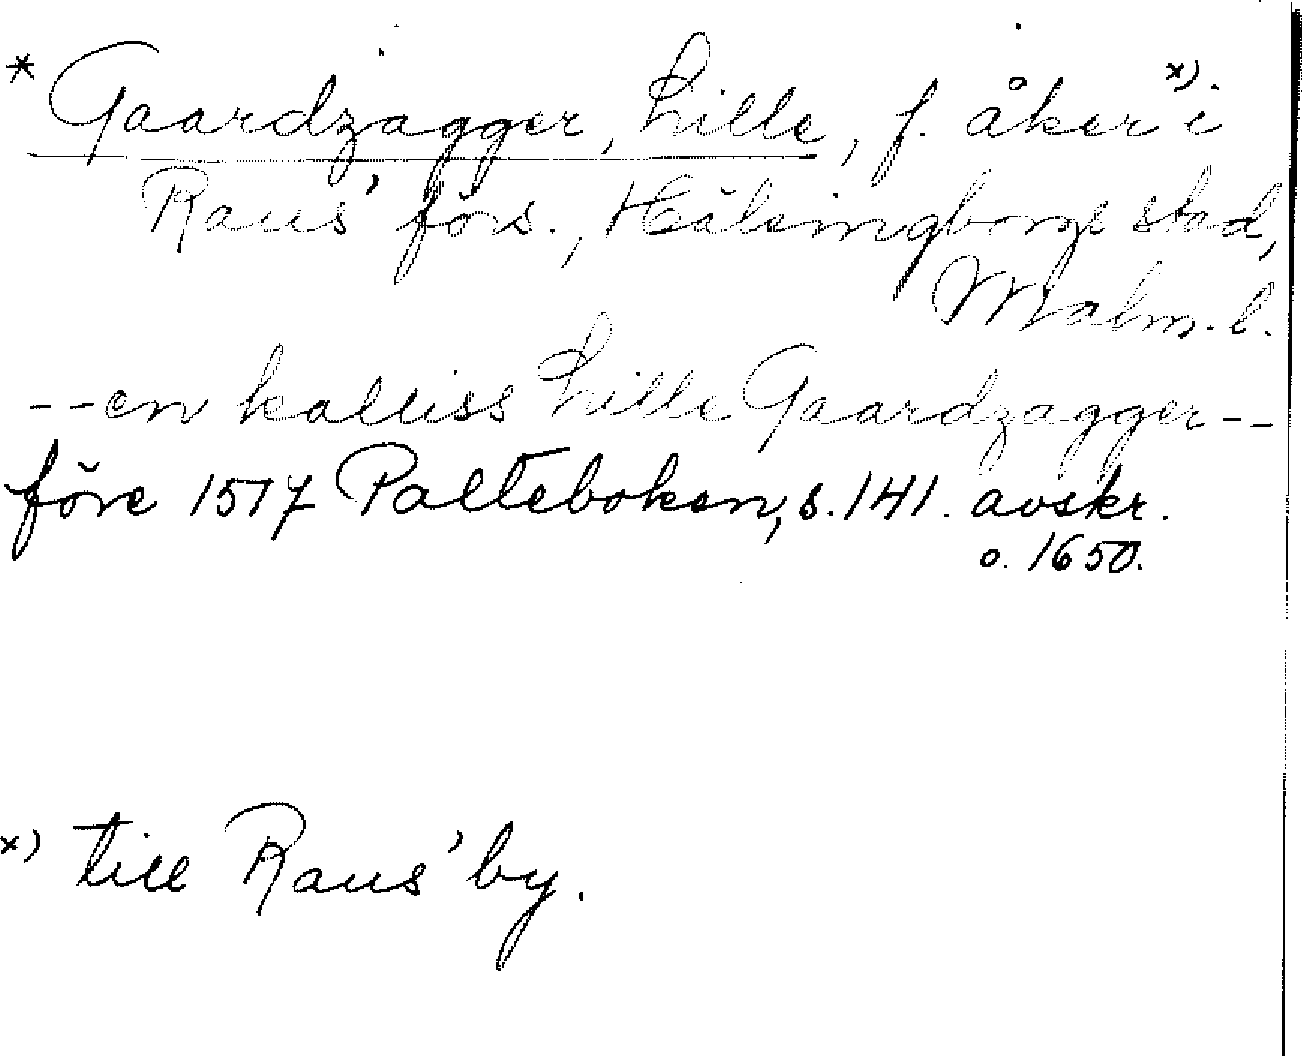 * Gaardzagger, Lille, f. åker x) i
Raus' förs., Hälsingborgs stad,
Malm. l.
-- en kalliss Lille Gaardzagger --
före 1517 Palteboken, s. 141. avskr.
o. 1650.
x) till Raus' by.